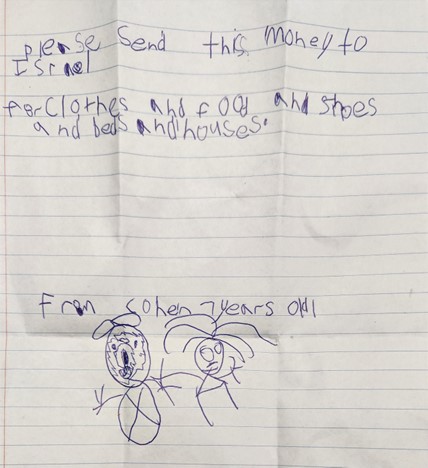 please Send this Money to
Israel
for Clothes and food and shoes
and beds and houses.
From Cohen 7 years old